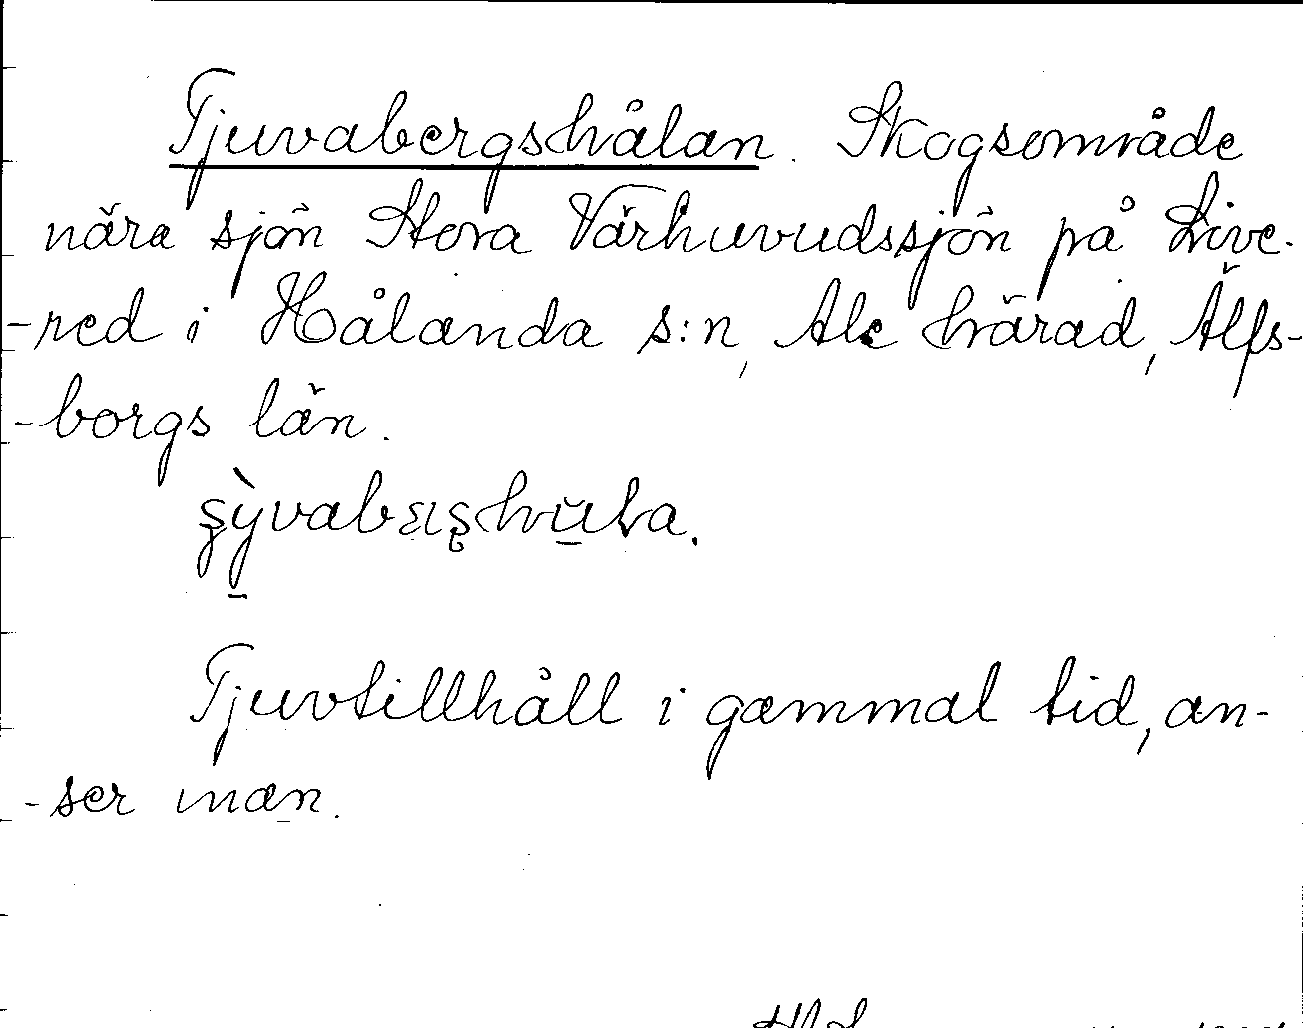 Tjuvabergshålan. Skogsområde
nära sjön Stora Värhuvudssjön på Live-
-red i Hålanda s:n, Ale härad, Älfs-
-borgs län.
Tjuvtillhåll i gammal tid, an-
-ser man.